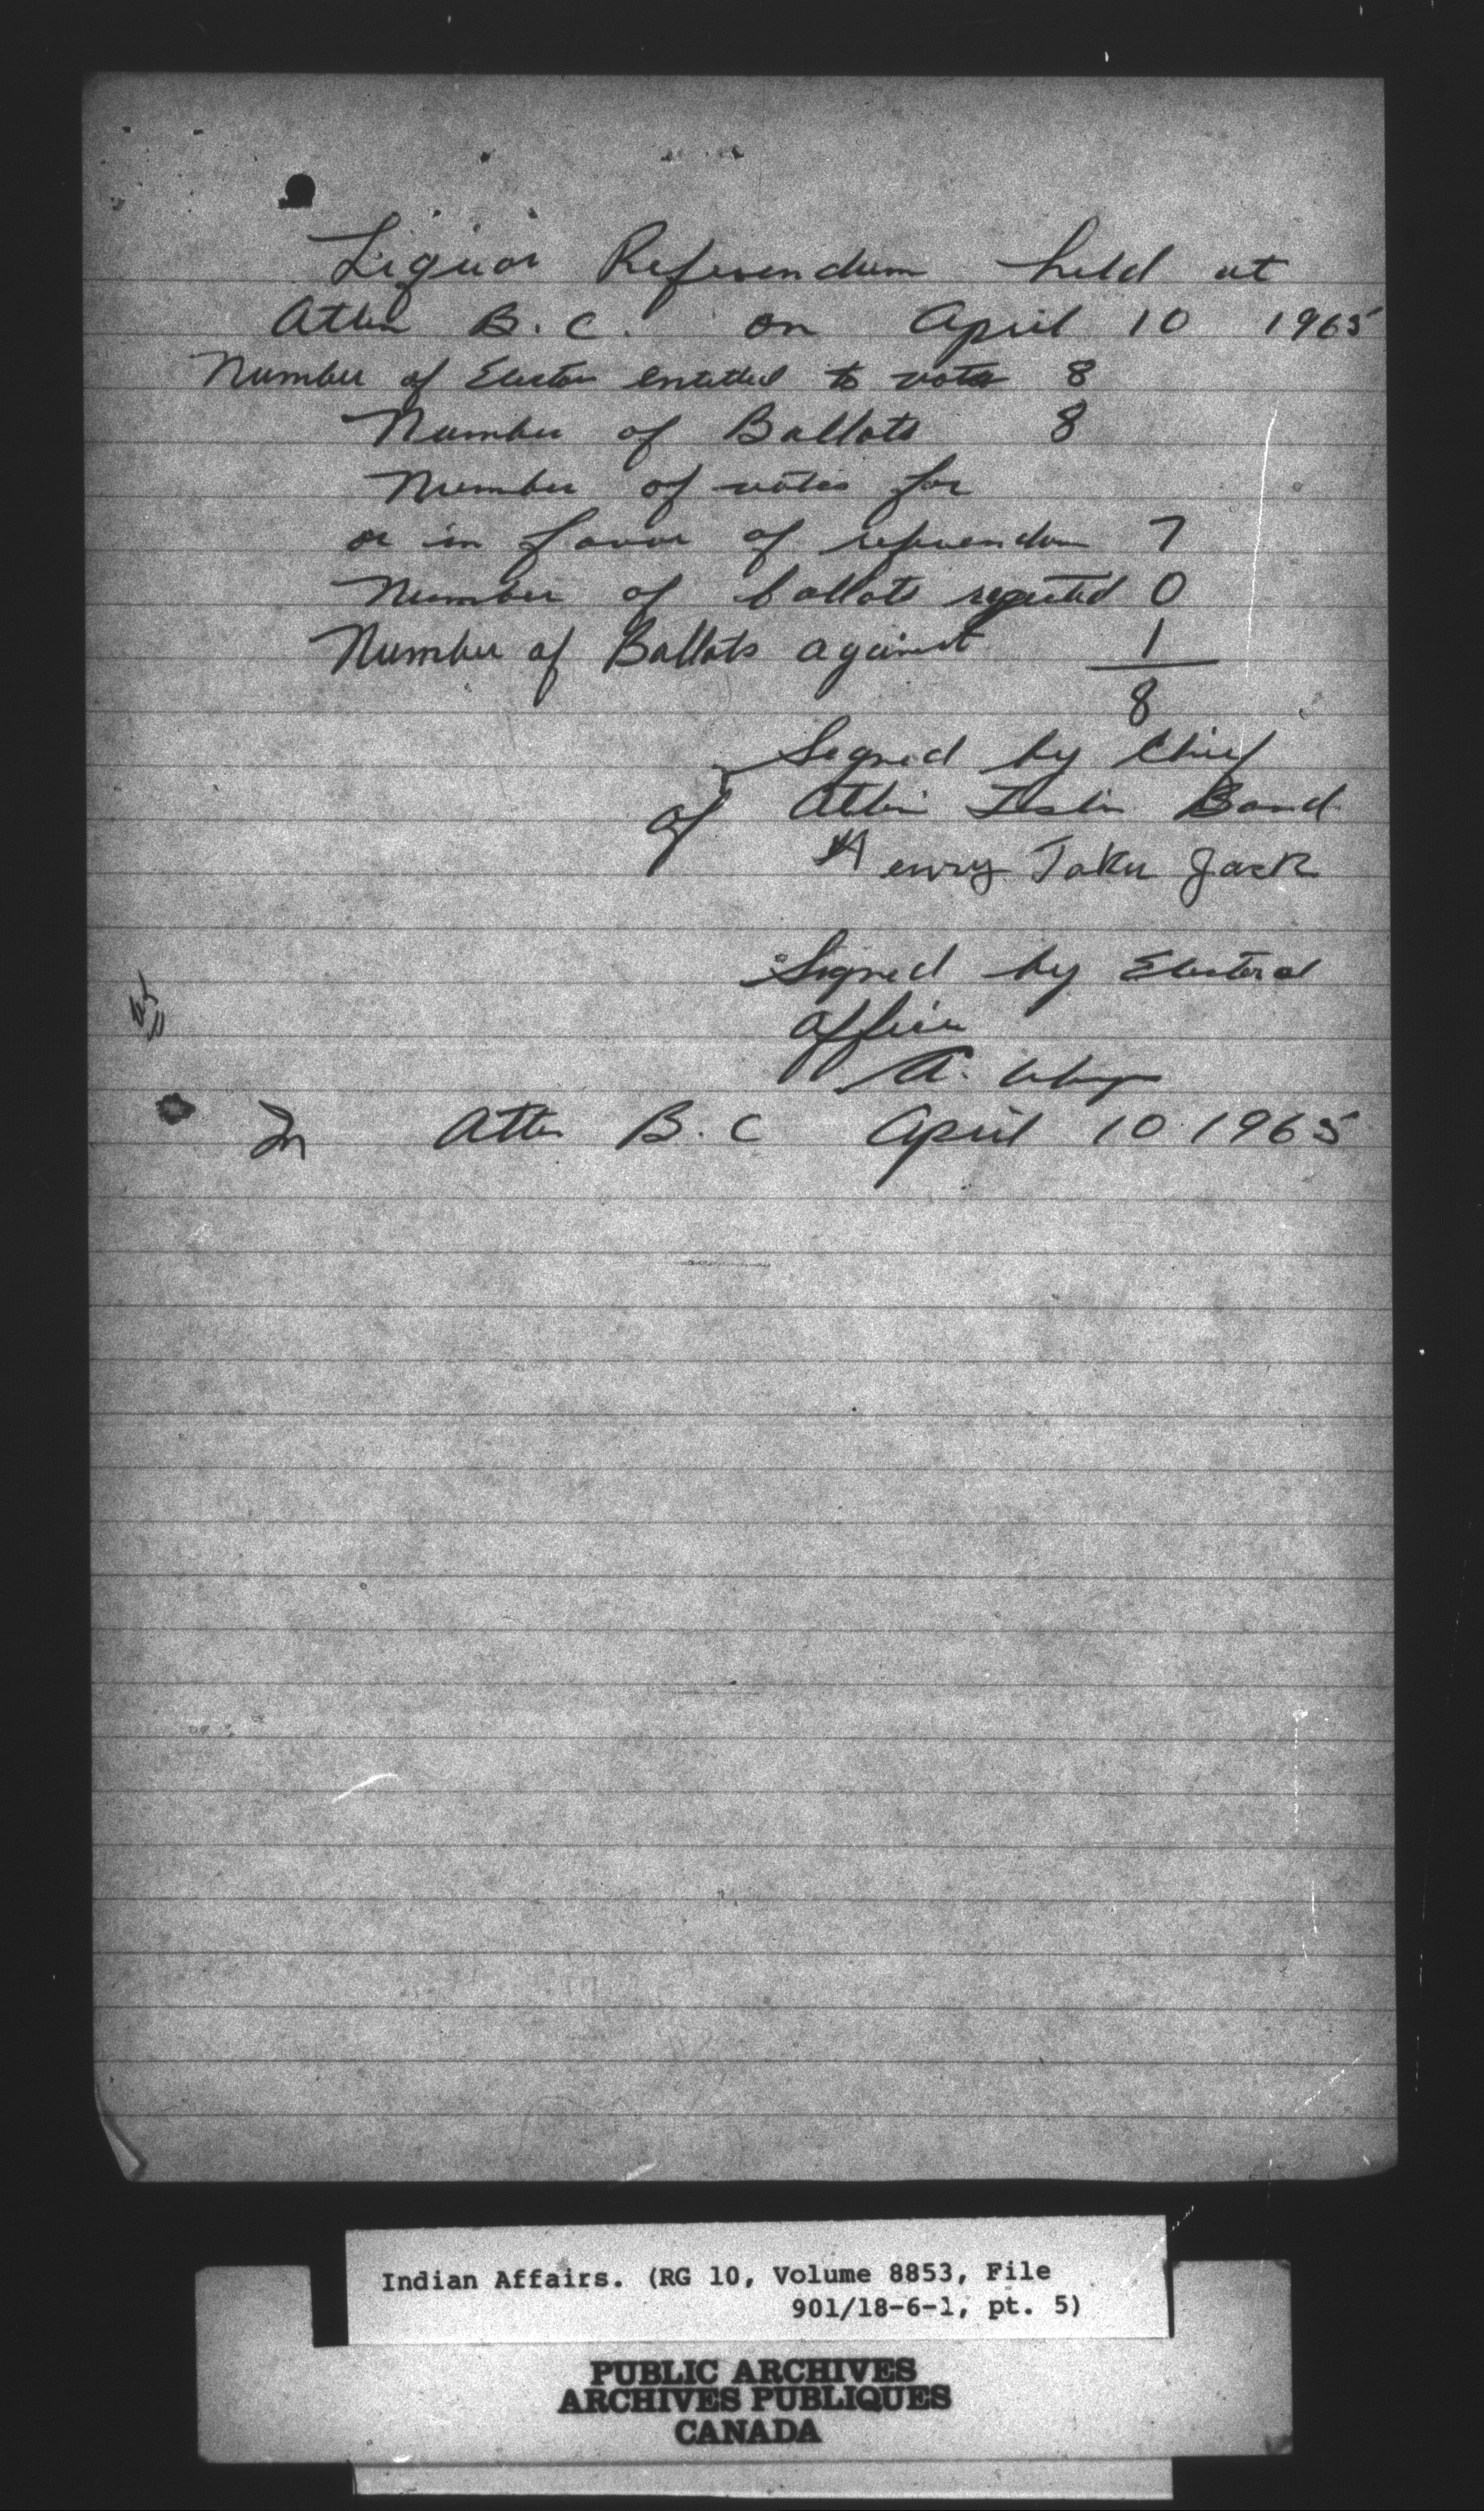 Liquor Referendum held at
Atlin B.C. on April 10 1965
Number of Electors entitled to vote 8
Number of Ballots 8
Number of votes for
or in favor of referendum 7
Number of ballots rejected 0
Number of Ballots against 1
8
Signed by Chief
of Atlin Teslin Band
Henry Taku Jack
Signed by Electoral
Officer
A.
In Atlin B.C April 10 1965
Indian Affairs. (RG 10, Volume 8853, File
901/18-6-1, pt. 5)
PUBLIC ARCHIVES
ARCHIVES PUBLIQUES
CANADA